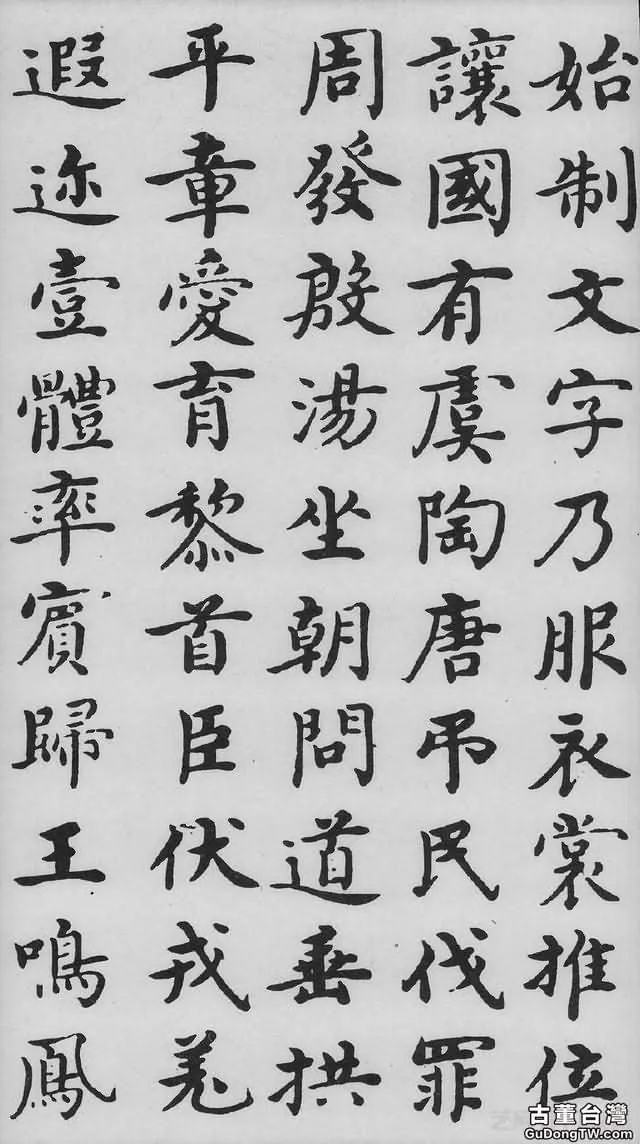 始制文字乃服衣裳推位
讓國有虞陶唐弔民伐罪
周發殷湯坐朝問道垂拱
平章愛育黎首臣伏戎羌
遐迩壹體率賓歸王鳴鳳
古董台灣
GuDongTW.com